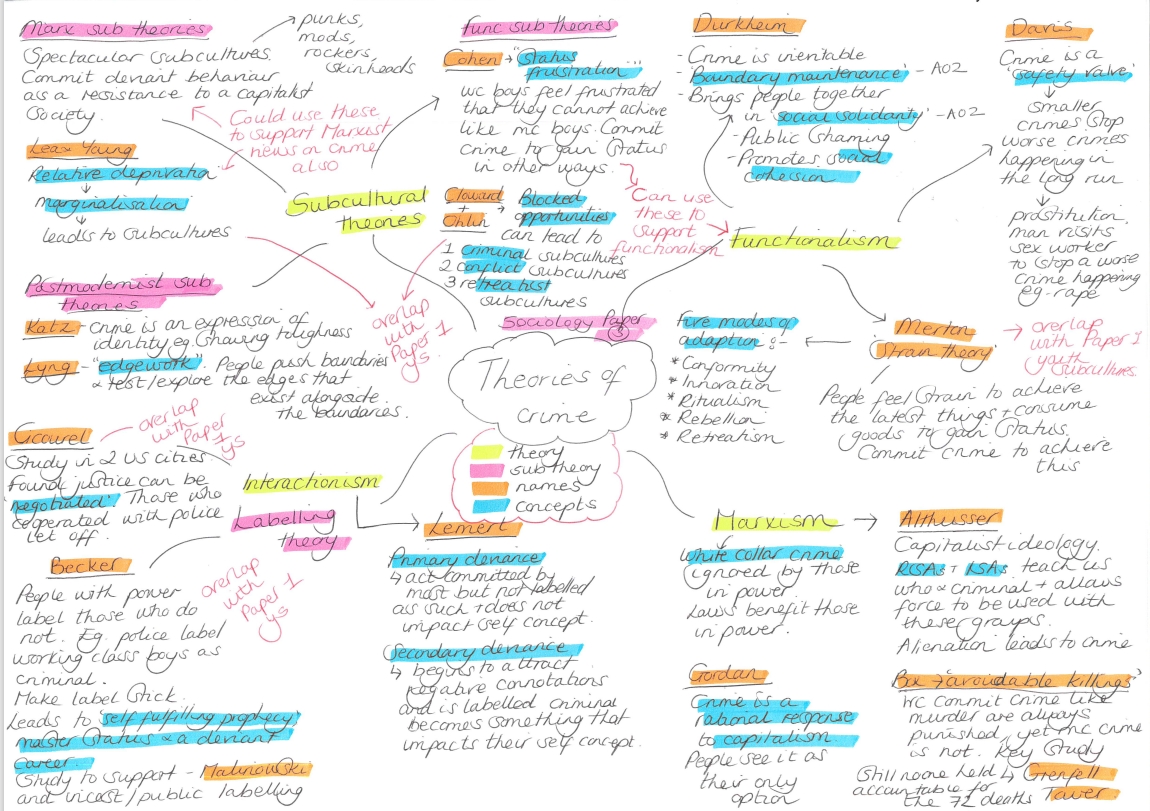 Marx sub theories
Spectacular subcultures.
Commit deviant behaviour
as a resistance to a capitalist
society.
punks,
mods,
rockers,
skinheads
Could use these
to support Marxist
views on crime
also
Lea + Young
Relative deprivation
marginalisation
leads to subcultures
Subcultural
theories
Func sub theories
Cohen → "status
frustration"
wc boys feel frustrated
that they cannot achieve
like mc boys. Commit
crime to gain status
in other ways.
Can use
these to
support
functionalism
Cloward
+
Ohlin
→ Blocked
opportunities
can lead to
1 Criminal subcultures
2 Conflict subcultures
3 retreatist
subcultures
overlap
with
Paper 1
ys
Durkheim
- Crime is inevitable
- 'Boundary maintenance' - AO2
- Brings people together
in 'social solidarity' - AO2
- Public shaming
- Promotes social
cohesion
Davis
Crime is a
'safety valve'
smaller
crimes stop
worse crimes
happening in
the long run
prostitution.
man visits
sex worker
to stop a worse
crime happening
eg. rape
Functionalism
Merton
'Strain theory'
→ overlap
with Paper 1
youth
subcultures.
Five modes of
adaption :-
* Conformity
* Innovation
* Ritualism
* Rebellion
* Retreatism
People feel strain to achieve
the latest things + consume
goods to gain status.
Commit crime to achieve
this
Postmodernist sub
theories
Katz - crime is an expression of
identity eg. showing toughness
Lyng - "edgework". People push boundaries
& test/explore the edges that
exist alongside
the boundaries.
Sociology Paper
3
Theories of
crime
theory
sub theory
names
concepts
Cicourel
overlap
with
Paper
1
ys
Study in 2 US cities
Found justice can be
'negotiated'. Those who
cooperated with police
let off.
Interactionism
Labelling
theory
overlap
with
Paper 1
ys
Becker
People with power
label those who do
not. Eg. police label
working class boys as
criminal.
Make label stick.
Leads to 'self fulfilling prophecy'
master status & a deviant
career.
Study to support - Malinowski
and incest/public labelling
Lemert
Primary deviance
↳ act committed by
most but not labelled
as such + does not
impact self concept.
Secondary deviance
↳ begins to attract
negative connotations
and is labelled criminal
becomes something that
impacts their self concept.
Marxism →
White collar crime
ignored by those
in power.
Laws benefit those
in power.
Althusser
Capitalist ideology.
RSAs + ISAs teach us
who is criminal + allows
force to be used with
these groups.
Alienation leads to crime
Gordan
Crime is a
rational response
to capitalism.
People see it as
their only
option
Box → 'avoidable killings'
wc commit crime like
murder are always
punished, yet mc crime
is not. Key study
↳ Grenfell
Tower
Still no one held
accountable for
the 72 deaths